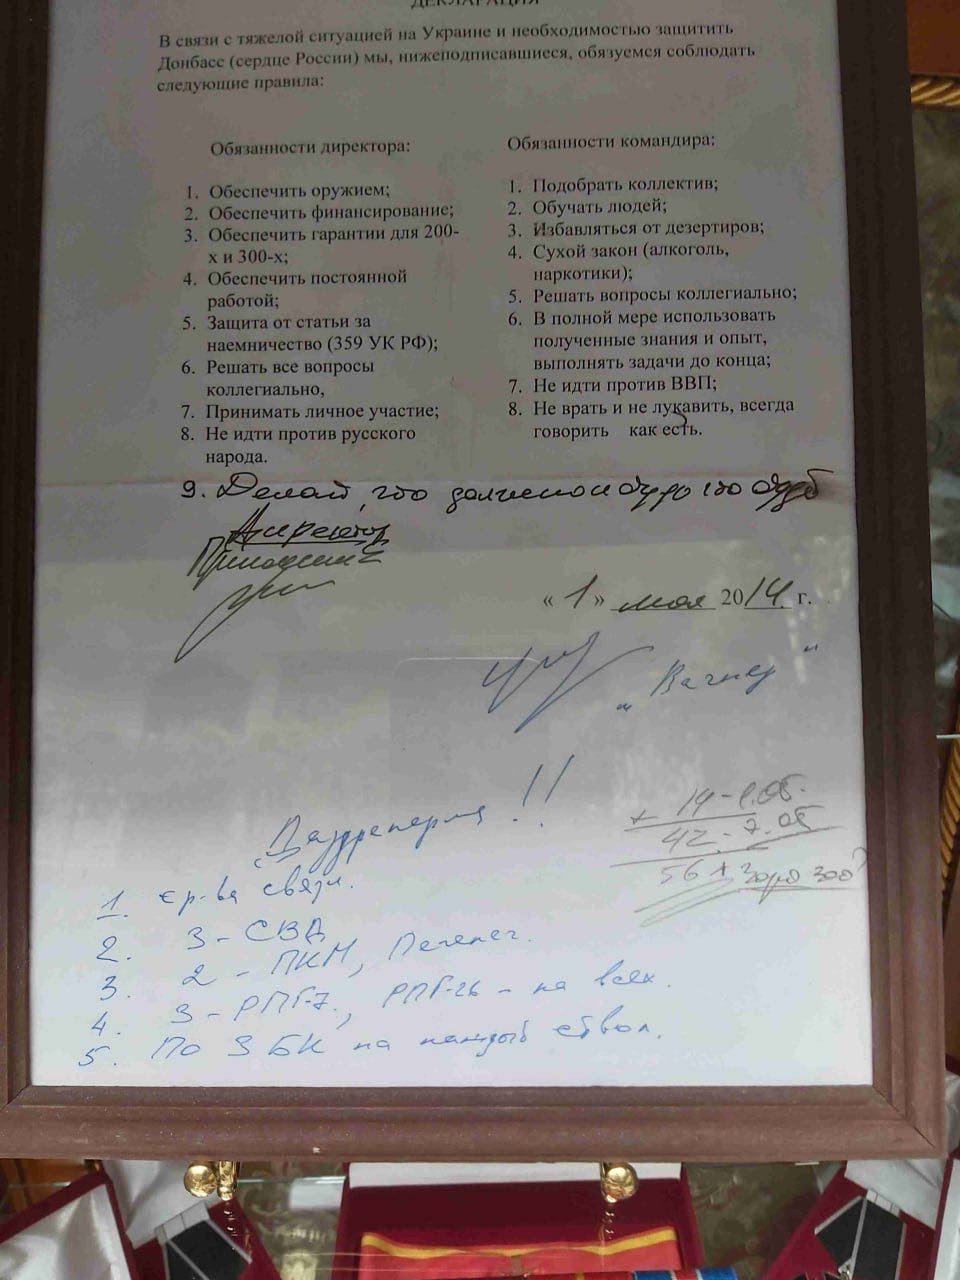 ДЕКЛАРАЦИЯ
В связи с тяжелой ситуацией на Украине и необходимостью защитить
Донбасс (сердце России) мы, нижеподписавшиеся, обязуемся соблюдать
следующие правила:
Обязанности директора:
1. Обеспечить оружием;
2. Обеспечить финансирование;
3. Обеспечить гарантии для 200-
х и 300-х;
4. Обеспечить постоянной
работой;
5. Защита от статьи за
наемничество (359 УК РФ);
6. Решать все вопросы
коллегиально,
7. Принимать личное участие;
8. Не идти против русского
народа.
Обязанности командира:
1. Подобрать коллектив;
2. Обучать людей;
3. Избавляться от дезертиров;
4. Сухой закон (алкоголь,
наркотики);
5. Решать вопросы коллегиально;
6. В полной мере использовать
полученные знания и опыт,
выполнять задачи до конца;
7. Не идти против ВВП;
8. Не врать и не лукавить, всегда
говорить как есть.
9. Делай, что должно и будь что будет
Директор
Пригожин
« 1 » мая 2014 г.
"Вагнер"
!!
14 - 1.05.
42 - 7.05
56
1. ср-ва связи.
2. 3 - СВД
3. 2 - ПКМ, Печенег.
4. 3 - РПГ-7, РПГ-26 - на всех.
5. По 3 БК на каждый ствол.